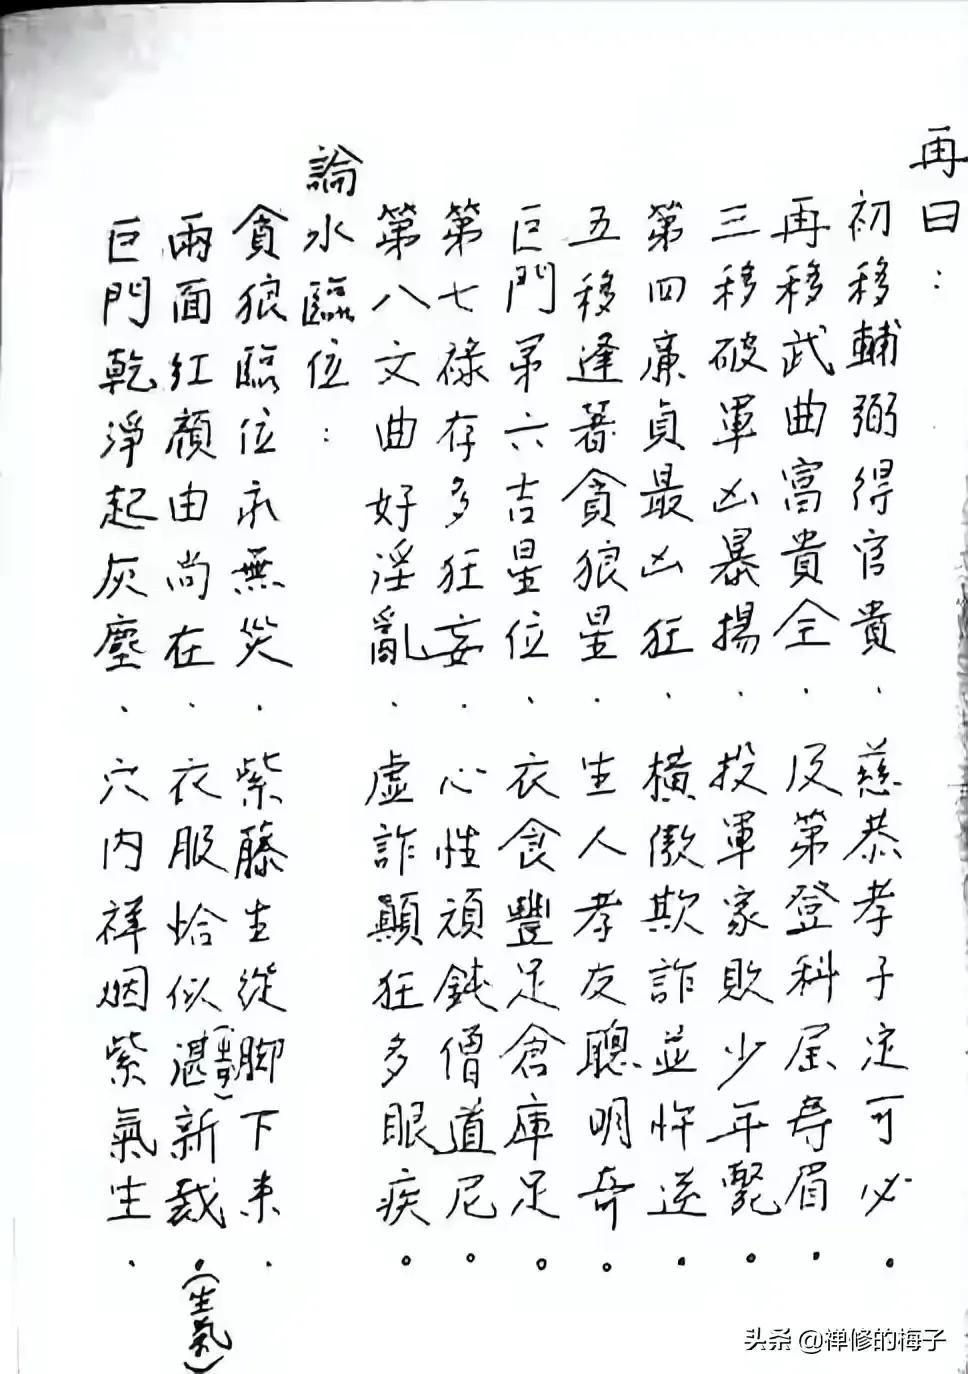 再曰：
初移輔弼得官貴．慈恭孝子定可必。
再移武曲富貴全．及第登科屈寿眉．
三移破軍凶暴揚．投軍家敗少年斃．
第四廉貞最凶狂．橫傲欺詐並忤逆．
五移逢著貪狼星．生人孝友聰明奇。
巨門第六吉星位．衣食豐足倉庫足。
第七祿存多狂妄．心性頑鈍僧道尼。
第八文曲好淫亂．虛詐顛狂多眼疾。
論水臨位：
貪狼臨位永無災．紫藤生從脚下来．
兩面紅顏由尚在．衣服恰似湛新裁．(生氣)
巨門乾淨起灰塵．穴內祥烟紫氣生．
头条 @禅修的梅子